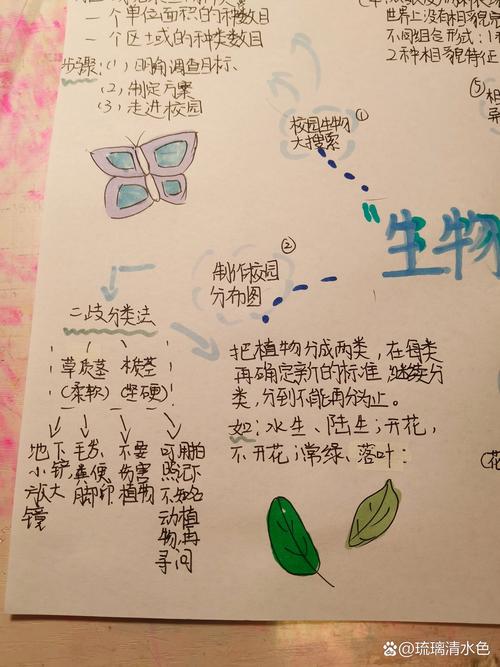 一个单位面积的种数目
一个区域的种类数目
步骤:(1) 明确调查目标、
(2) 制定方案
(3) 走进校园
世界上没有相
不同组合形式:1
2种相貌特征
⑤
相
异
①
校园生物
大搜索
"生物
②
制作校园
分布图
二歧分类法
草质茎 木质茎
(柔软) (坚硬)
地下小镜六放大镜
毛发,粪便脚印
不要伤害植物
可用拍照记下不知名动植物,再寻问
把植物分成两类,在每类
再确定新的标准,继续分
类,分到不能再分为止。
如:水生、陆生;开花,
不开花;常绿、落叶:
(花
百度 @琉璃清水色